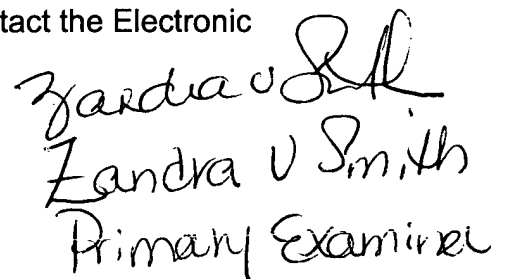 tact the Electronic
Zandra V Smith
Zandra V Smith
Primary Examiner